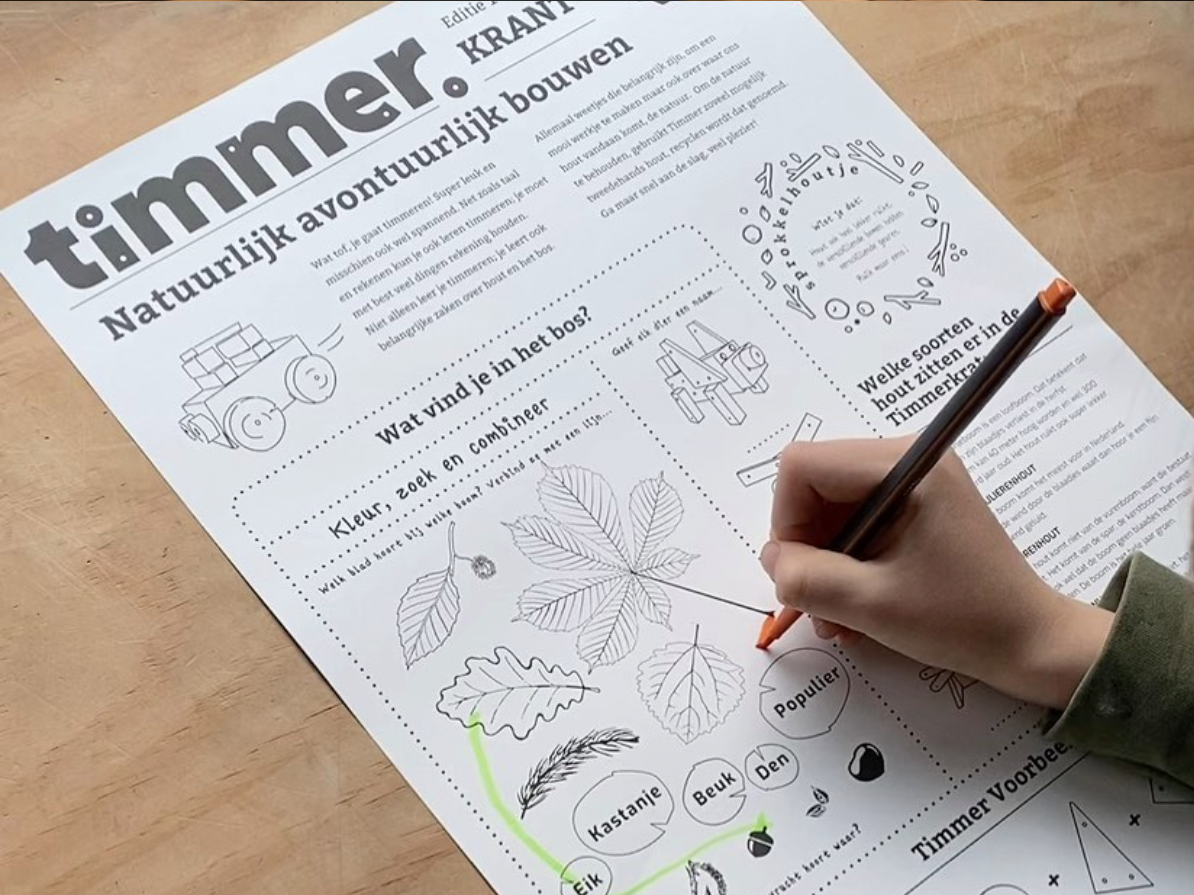 timmer.
Editie
KRANT
Natuurlijk avontuurlijk bouwen
Wat tof, je gaat timmeren! Super leuk en
misschien ook wel spannend. Net zoals taal
en rekenen kun je ook leren timmeren; je moet
met best veel dingen rekening houden.
Niet alleen leer je timmeren; je leert ook
belangrijke zaken over hout en het bos.
Allemaal weetjes die belangrijk zijn, om een
mooi werkje te maken maar ook over waar ons
hout vandaan komt, de natuur. Om de natuur
te behouden, gebruikt Timmer zoveel mogelijk
tweedehands hout, recyclen wordt dat genoemd.
Ga maar snel aan de slag, veel plezier!
sprokkelhoutje
Wist je dat:
Hout we wel lekker ruikt.
de verschillende bomen hebben
verschillende geuren.
Ruik maar eens!
Wat vind je in het bos?
Kleur, zoek en combineer
Welk blad hoort bij welke boom? Verbind ze met een lijn...
Geef elk dier een naam...
Populier
Den
Beuk
Kastanje
Eik
vracht hoort waar?
Welke soorten
hout zitten er in de
boom is een loofboom. Dat betekent dat
zijn blaadjes verliest in de herfst.
kan 40 meter hoog worden en wel 300
jaar oud. Het hout ruikt ook super lekker
boom komt het meest voor in Nederland.
de wind door de blaadjes waait dan hoor je een fijn
geluid.
Het komt niet van de vurenboom, want die bestaat
Het komt van de spar, de kerstboom. Dan weet
wel dat de boom geen blaadjes heeft maar
De boom is het hele jaar groen.
Timmer